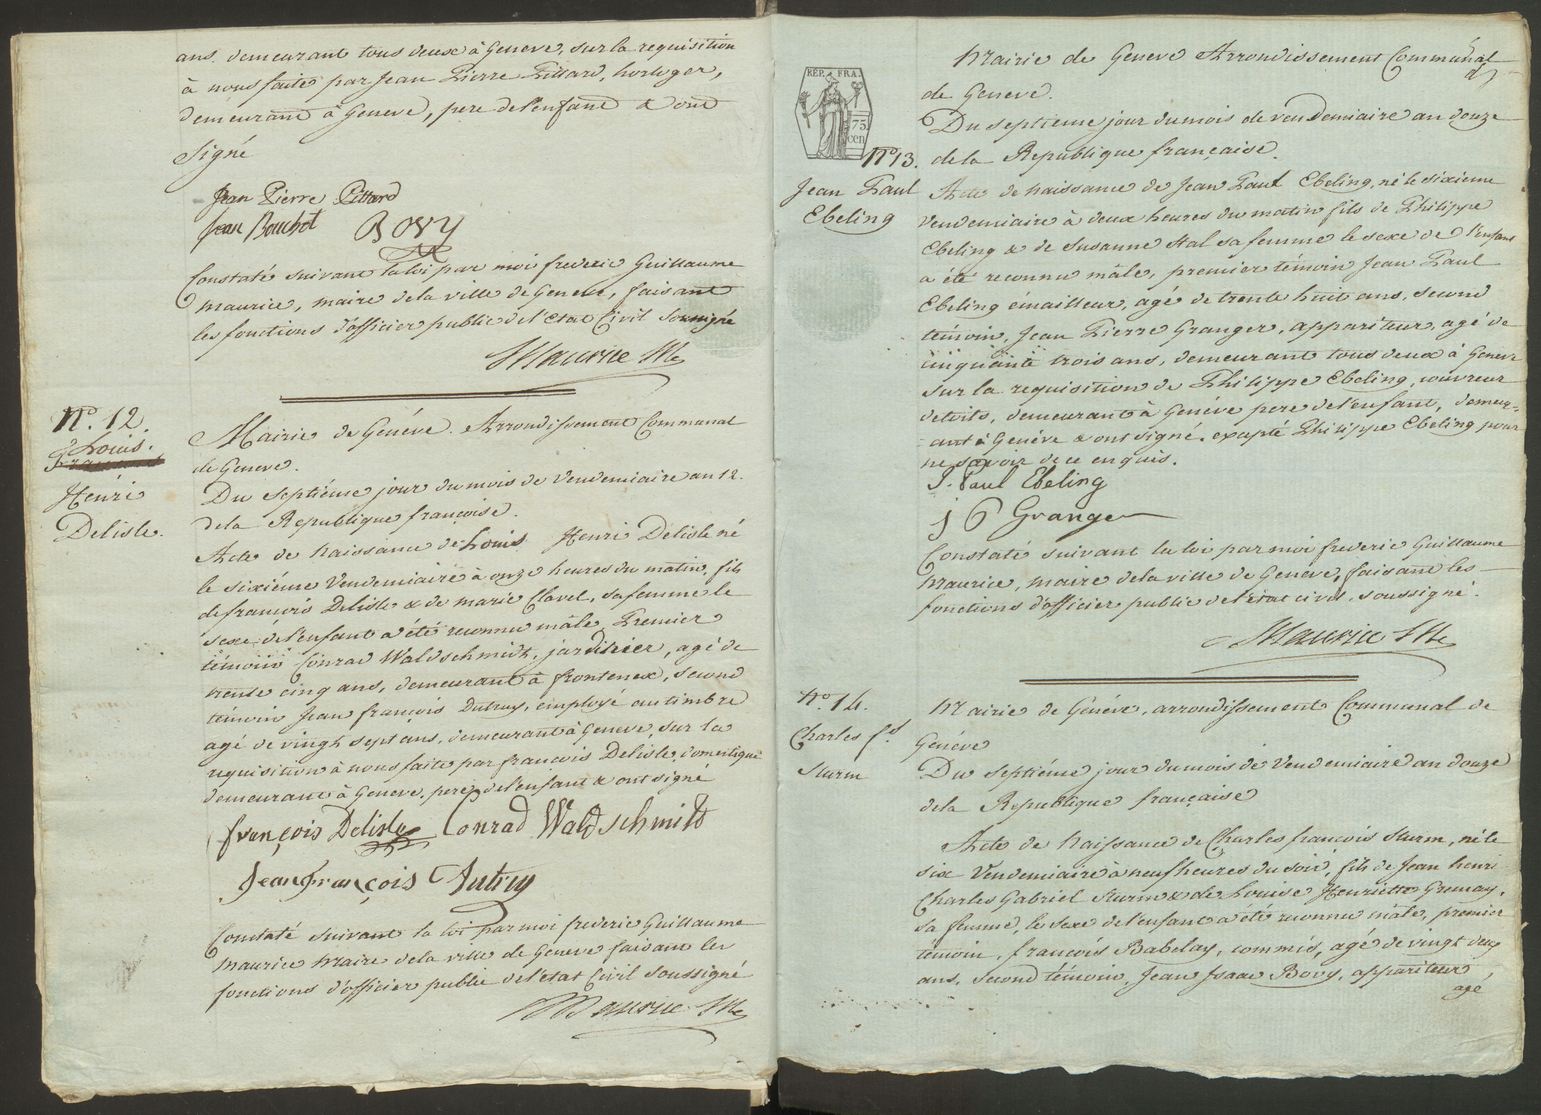 ans, demeurant tous deux à Geneve, sur la requisition
à nous faite par Jean Pierre Pittard, horloger,
demeurant à Geneve, pere de l'enfant & ont
signé
Jean Pierre Pittard
Jean Bouchet Bovy
Constaté suivant la loi par moi frederic Guillaume
maurice, maire de la ville de Geneve, faisant
les fonctions d'officier public de l'etat Civil soussigné
Maurice Me
N.o 12.
Louis.
Henri
Delisle.
Mairie de Genéve. Arrondissement Communal
de Geneve.
Du septiéme jour du mois de Vendemiaire an 12.
de la Republique françoise.
Acte de naissance de Louis Henri Delisle né
le sixiéme Vendemiaire à onze heures du matin, fils
de françois Delisle & de marie Clavel, sa femme le
sexe de l'enfant a été reconnu mâle Premier
témoin Conrad Waldschmidt, jardinier, agé de
trente cinq ans, demeurant à frontenex, second
témoin Jean françois Dutruy, employé au timbre
agé de vingt sept ans, demeurant à Geneve, sur la
requisition à nous faite par françois Delisle, domestique
demeurant à Geneve, pere de l'enfant & ont signé
françois Delisle Conrad Waldschmidt
Jean françois Dutruy
Constaté suivant la loi par moi frederic Guillaume
maurice maire de la ville de Geneve faisant les
fonctions d'officier public de l'etat Civil soussigné
Maurice Me
REP. FRA.
75
cen
N.o 13.
Jean Paul
Ebeling
Mairie de Geneve Arrondissement Communal
de Geneve.
Du septieme jour du mois de vendemiaire an douze
de la Republique française.
Acte de naissance de Jean Paul Ebeling, né le sixieme
Vendemiaire à deux heures du matin fils de Philippe
Ebeling & de Susanne Stal sa femme le sexe de l'enfant
a été reconnu mâle, premier témoin Jean Paul
Ebeling emailleur, agé de trente huit ans, second
temoin, Jean Pierre Granger, appariteur, agé de
cinquante trois ans, demeurant tous deux à Geneve
sur la requisition de Philippe Ebeling, couvreur
de toits, demeurant à Genéve pere de l'enfant, demeur-
ant à Genéve & ont signé, excepté Philippe Ebeling pour
ne savoir de ce enquis.
J. Paul Ebeling
J P Granger
Constaté suivant la loi par moi frederic Guillaume
Maurice, maire de la ville de Genéve, faisant les
fonctions d'officier public de l'état civil, soussigné.
Maurice Me
N.o 14.
Charles f.s
Sturm
Mairie de Genéve, arrondissement Communal de
Genéve
Du septiéme jour du mois de Vendemiaire an douze
de la Republique française
Acte de Naissance de Charles francois Sturm, né le
six Vendemiaire à neuf heures du soir, fils de Jean henri
Charles Gabriel Sturm & de Louise Henriette Gremay,
sa femme, le sexe de l'enfant a été reconnu mâle, premier
témoin, francois Babelay, commis, agé de vingt deux
ans, second témoin, Jean Isaac Bovy, appariteur,
agé